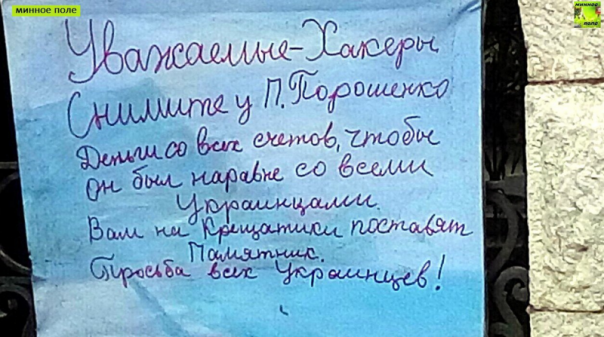 минное поле
минное
поле
Уважаемые-Хакеры
Снимите у П. Порошенко
Деньги со всех счетов, чтобы
он был наравне со всеми
Украинцами.
Вам на Крещатики поставят
Памятник.
Просьба всех Украинцев!